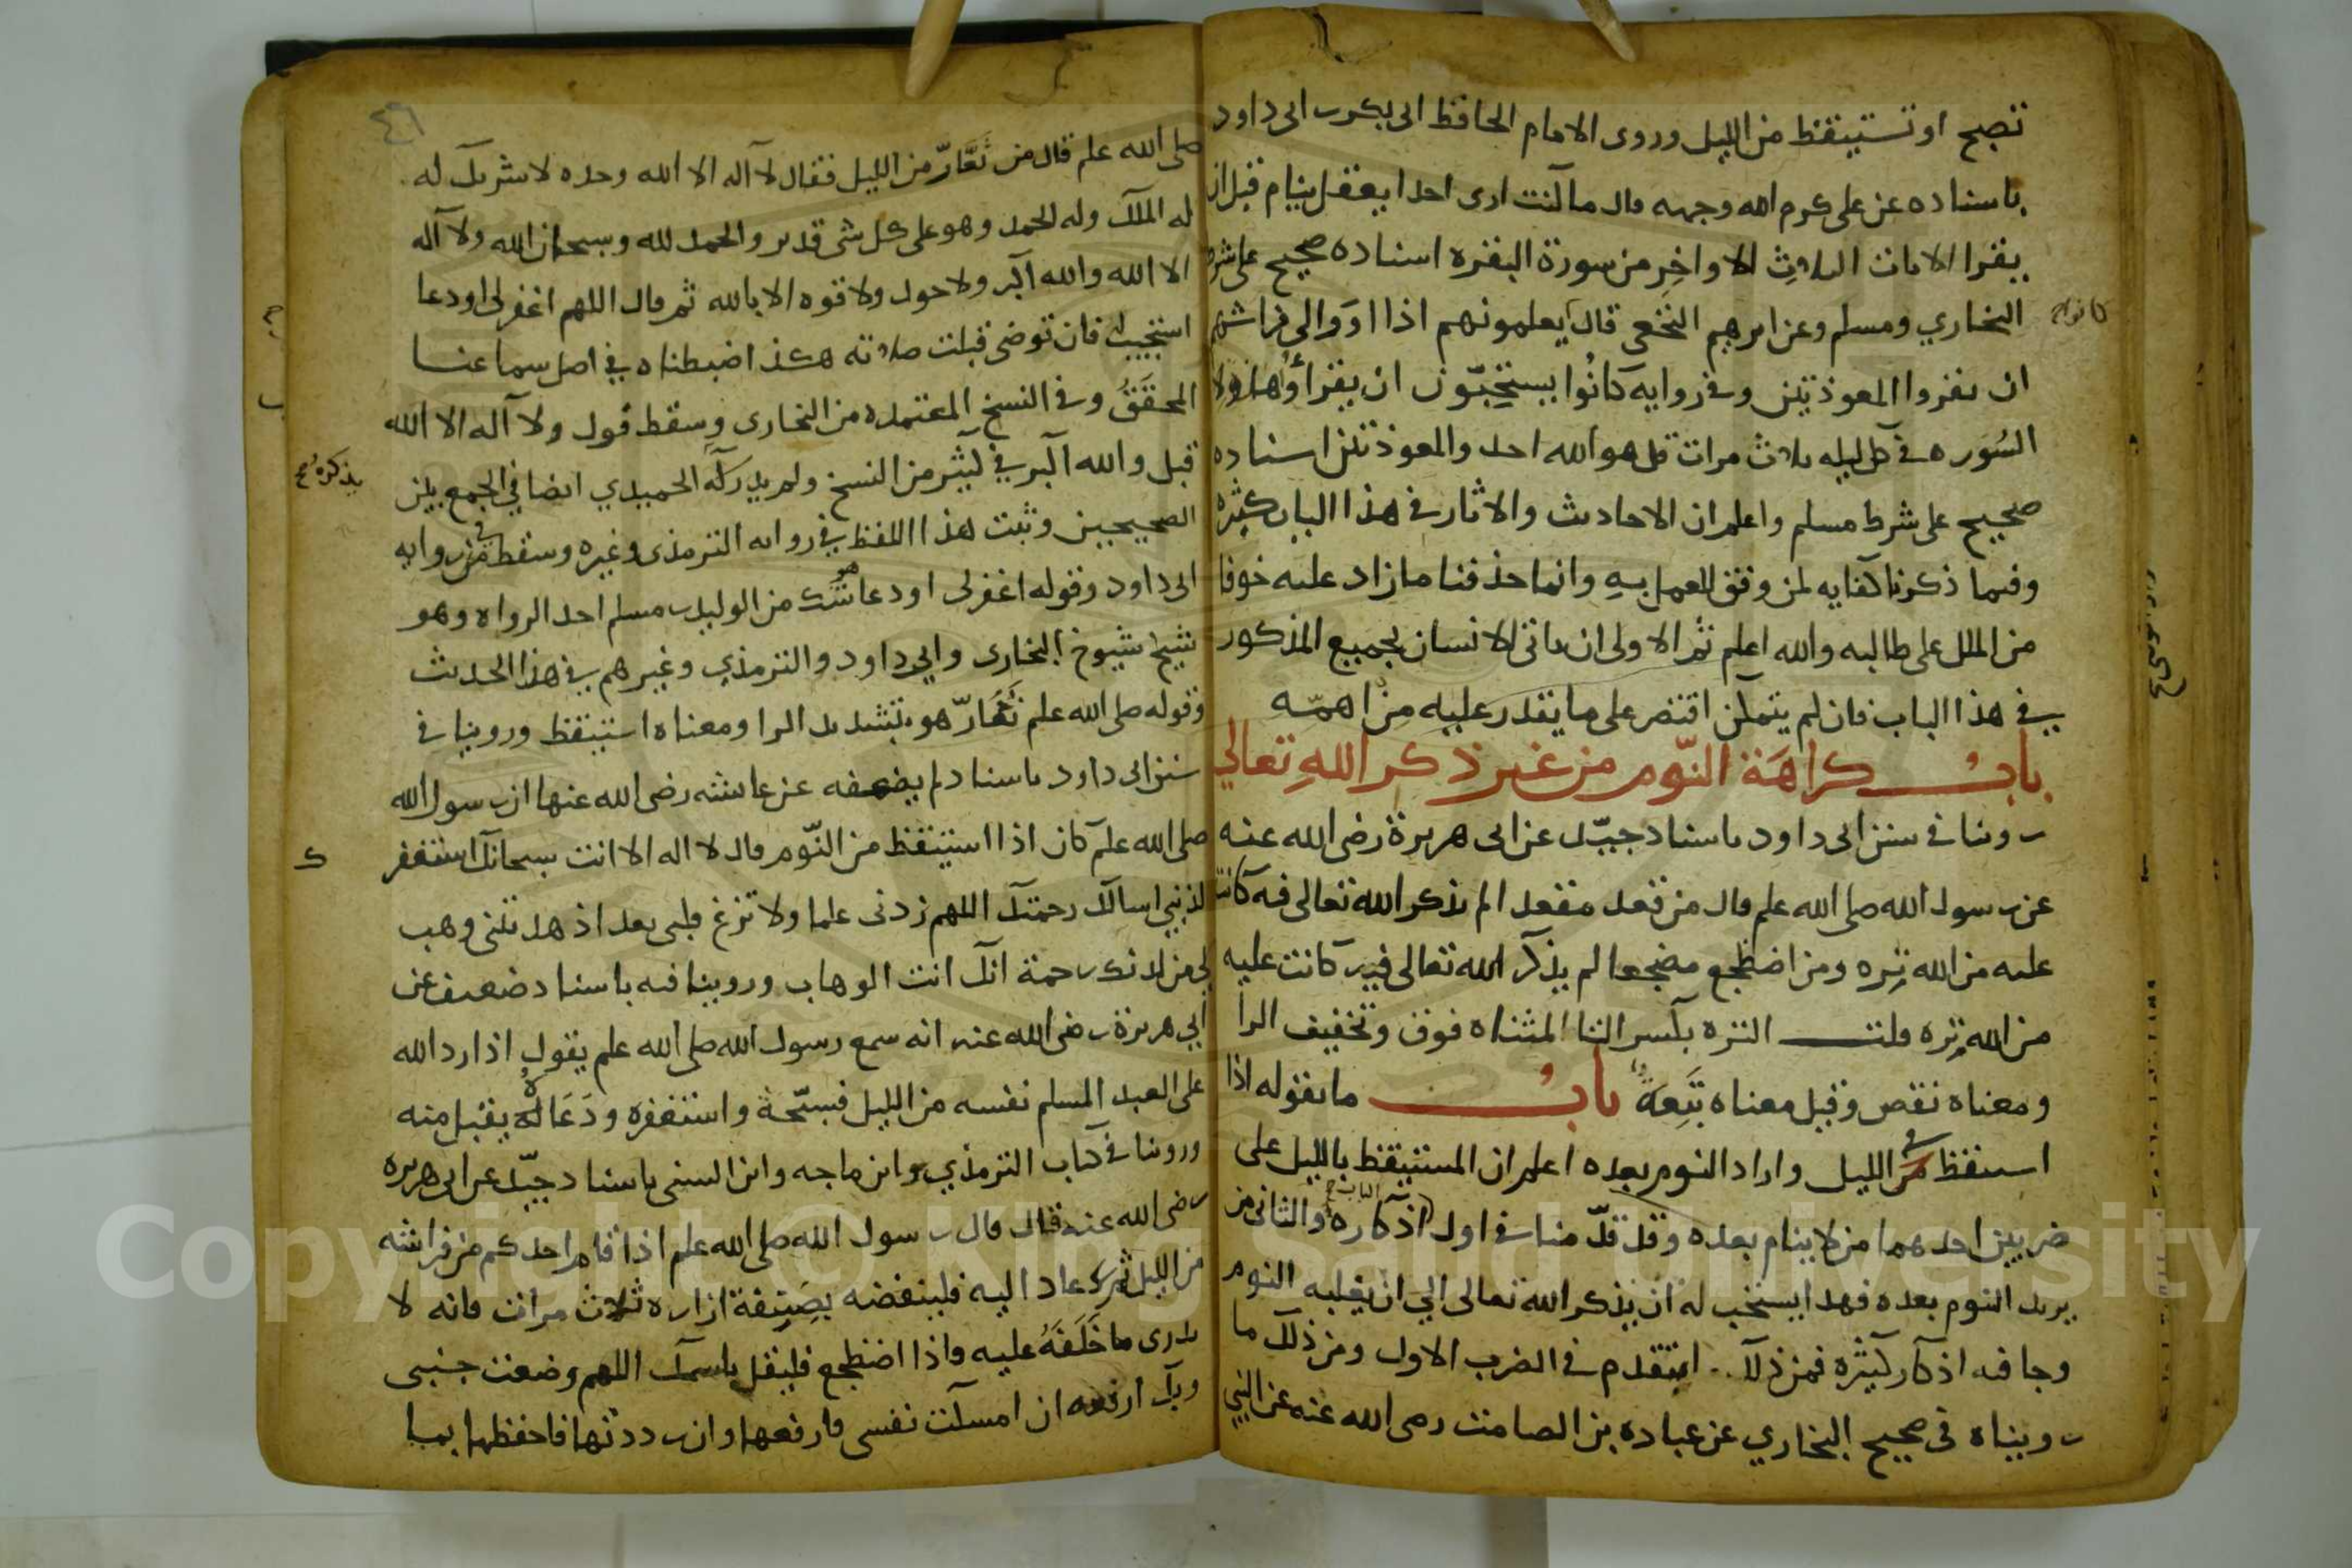 تصبح او تستيقظ من الليل وروى الامام الحافظ ابى بكر بن ابى داود
باسناده عن على كرم الله وجهه قال ما كنت ارى احدا يعقل ينام قبل ان
يقرا الايات الثلاث الاواخر من سورة البقره اسناده صحيح على شرط
البخاري ومسلم وعن ابرهيم النخعى قال يعلمونهم اذا اووا الى فراشهم
كانوا
ان يقروا المعوذتين وفى روايه كانوا يستحبون ان يقرأوا هاولا
السور فى كل ليله ثلاث مرات قل هو الله احد والمعوذتين اسناده
صحيح على شرط مسلم واعلم ان الاحاديث والاثار فى هذا الباب كثيره
وفيما ذكرنا كفايه لمن وفق للعمل به وانما حذفنا ما زاد عليه خوفا
من الملل على طالبه والله اعلم ثم الاولى ان ياتى الانسان بجميع المذكور
فى هذا الباب فان لم يتمكن اقتصر على ما يقدر عليه من اهمه
باب كراهة النوم من غير ذكر الله تعالى
روينا فى سنن ابى داود باسناد جيد عن ابى هريرة رضى الله عنه
عن رسول الله صلى الله علم قال من قعد مقعدا لم يذكر الله تعالى فيه كانت
عليه من الله تره ومن اضطجع مضجعا لم يذكر الله تعالى فيه كانت عليه
من الله تره قلت التره بكسر التا المثناه فوق وتخفيف الرا
ومعناه نقص وقيل معناه تبعة باب ما يقوله اذا
استيقظ فى الليل واراد النوم بعده اعلم ان المستيقظ بالليل على
ضربين احدهما من لا ينام بعده وقد قدمنا فى اول اذكاره والثانى من
يريد النوم بعده فهذا يستحب له ان يذكر الله تعالى الى ان يغلبه النوم
وجا فيه اذكار كثيره فمن ذلك ما تقدم فى الضرب الاول ومن ذلك ما
رويناه فى صحيح البخاري عن عباده بن الصامت رضى الله عنه عن النبي
٤٦
صلى الله علم قال من تعار من الليل فقال لا اله الا الله وحده لا شريك له
له الملك وله الحمد وهو على كل شى قدير والحمد لله وسبحان الله ولا اله
الا الله والله اكبر ولا حول ولا قوه الا بالله ثم قال اللهم اغفر لى او دعا
استجيب له فان توضى قبلت صلاته هكذا ضبطناه فى اصل سماعنا
المحقق وفى النسخ المعتمده من البخارى وسقط قول ولا اله الا الله
قبل والله اكبر فى كثير من النسخ ولم يذكره الحميدي ايضا فى الجمع بين
يذكره
الصحيحين وثبت هذا اللفظ فى روايه الترمذى وغيره وسقط فى روايه
ابى داود وقوله اغفر لى او دعا هو شك من الوليد بن مسلم احد الرواه وهو
شيخ شيوخ البخارى وابي داود والترمذي وغيرهم فى هذا الحديث
وقوله صلى الله علم تعار هو بتشديد الرا ومعناه استيقظ وروينا فى
سنن ابى داود باسناد لم يضعفه عن عايشه رضى الله عنها ان رسول الله
صلى الله علم كان اذا استيقظ من النوم قال لا اله الا انت سبحانك استغفر
لذنبي اسالك رحمتك اللهم زدنى علما ولا تزغ قلبى بعد اذ هديتنى وهب
لى من لدنك رحمة انك انت الوهاب وروينا فيه باسناد ضعيف عن
ابي هريرة رضى الله عنه انه سمع رسول الله صلى الله علم يقول اذا رد الله
على العبد المسلم نفسه من الليل فسبحه واستغفره ودعاه يقبل منه
وروينا فى كتاب الترمذي وابن ماجه وابن السنى باسناد جيد عن ابى هريره
رضى الله عنه قال قال رسول الله صلى الله علم اذا قام احدكم من فراشه
من الليل ثم عاد اليه فلينفضه بصنفة ازاره ثلاث مرات فانه لا
يدرى ما خلفه عليه واذا اضطجع فليقل باسمك اللهم وضعت جنبى
وبك ارفعه ان امسكت نفسى فارفعها وان رددتها فاحفظها بما
Copyright © King Saud University